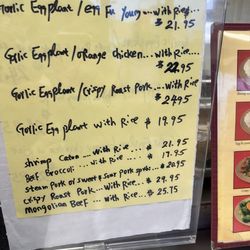 Garlic Eggplant / Egg Fu Young...with Rice...
$ 21.95
Garlic Eggplant / orange chicken...with Rice...
$ 22.95
Garlic Eggplant / Crispy Roast Pork...with Rice
$ 24.95
Garlic Eggplant with Rice $ 19.95
shrimp Curry ...with Rice ... $ 21.95
Beef Broccoli ...with Rice ... $ 19.95
steam Pork or sweet & sour Pork spareribs ... $ 20.95
Crispy Roast Pork...with Rice... $ 24.95
Mongolian Beef ...with Rice... $ 25.75